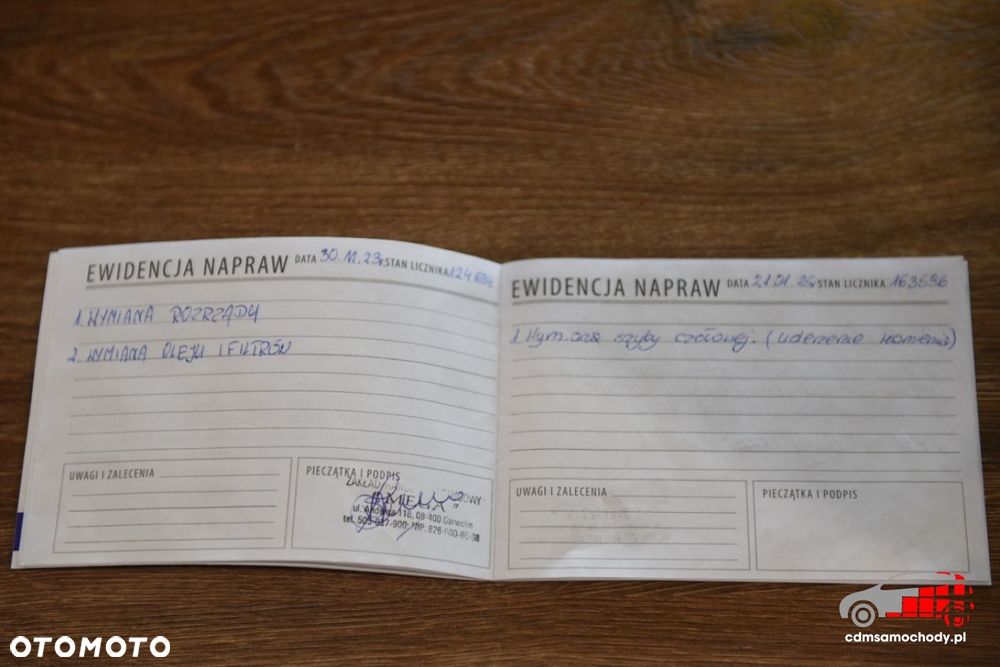 EWIDENCJA NAPRAW DATA 30.11.23r. STAN LICZNIKA
1. WYMIANA ROZRZĄDU
2. WYMIANA OLEJU I FILTRÓW
UWAGI I ZALECENIA
PIECZĄTKA I PODPIS
ZAKŁAD
08-400 Garwolin
EWIDENCJA NAPRAW DATA STAN LICZNIKA 163696
1. Wymiana szyby czołowej. (uderzenie kamienia)
UWAGI I ZALECENIA
PIECZĄTKA I PODPIS
OTOMOTO
cdmsamochody.pl